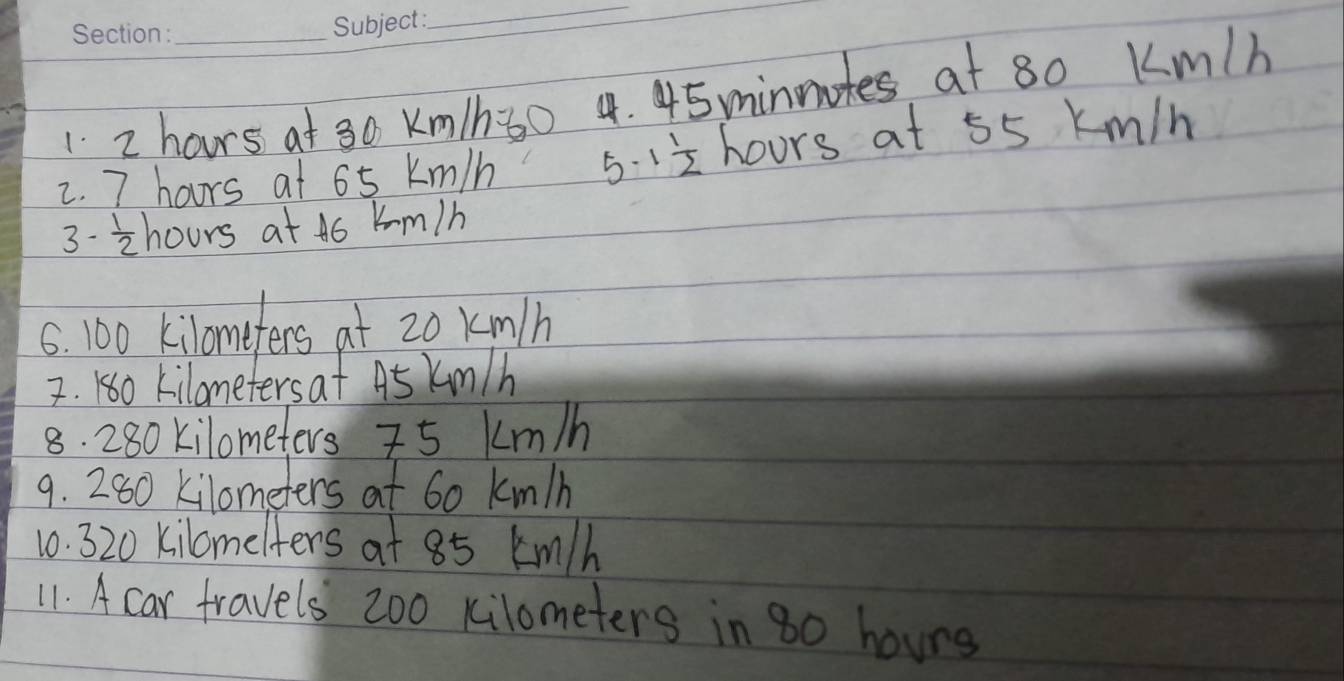 Section: Subject:
1. 2 hours at 30 Km/h=60
2. 7 hours at 65 Km/h
3- ½ hours at 46 Km/h
4. 45 minnutes at 80 Km/h
5-1 ½ hours at 55 Km/h
6. 100 Kilometers at 20 Km/h
7. 180 Kilometers at 45 Km/h
8. 280 Kilometers 75 Km/h
9. 280 Kilometers at 60 Km/h
10. 320 Kilomelters at 85 Km/h
11. A car travels 200 Kilometers in 80 hours